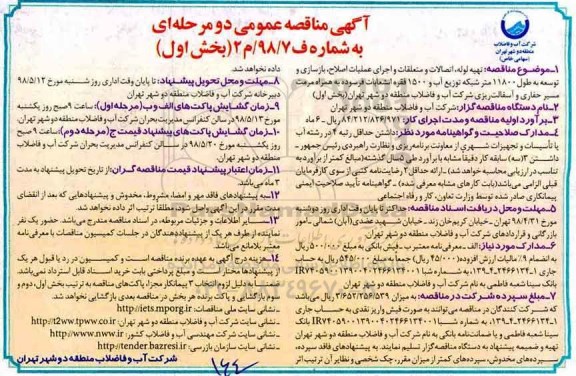 آگهی مناقصه عمومی دو مرحله‌ای
به شماره ف۹۸/۷/م۲(بخش اول)
شرکت آب و فاضلاب
منطقه دو شهر تهران
(سهامی خاص)
۱ـ موضوع مناقصه: تهیه لوله، اتصالات و متعلقات و اجرای عملیات اصلاح، بازسازی و
توسعه به طول ۱۱۸۰۰ متر شبکه توزیع آب و ۱۵۰۰ فقره انشعابات فرسوده به همراه مرمت
مسیر حفاری و آسفالت‌ریزی شرکت آب و فاضلاب منطقه دو شهر تهران (بخش اول)
۲ـ نام دستگاه مناقصه گزار: شرکت آب و فاضلاب منطقه دو شهر تهران
۳ـ برآورد اولیه مناقصه و مدت اجرای کار: ریال ـ ۶ ماه
۴ـ مدارک صلاحیت و گواهینامه مورد نظر: داشتن حداقل رتبه ۴ در رشته آب
یا تأسیسات و تجهیزات شهری از معاونت برنامه‌ریزی و نظارت راهبردی رئیس جمهور ـ
داشتن ۳(سه) سابقه کار دقیقا مشابه با برآورد در ۵ سال گذشته (مبالغ کمتر از برآورد به
تناسب در ارزیابی محاسبه خواهد شد) ـ ارائه حداقل ۲ رضایت‌نامه کتبی از سوی کارفرمایان
قبلی الزامی می‌باشد (بابت کارهای مشابه معرفی شده) ـ گواهینامه تأیید صلاحیت ایمنی
پیمانکاری صادر شده توسط وزارت تعاون، کار و رفاه اجتماعی
۵ـ مهلت و محل دریافت اسناد مناقصه: حداکثر تا پایان وقت اداری روز سه‌شنبه
مورخ ۹۸/۲/۱ تهران ـ خیابان ـ امور
بازرگانی و قراردادهای شرکت آب و فاضلاب منطقه دو شهر تهران
۶ـ مدارک مورد نیاز: الف ـ معرفی‌نامه معتبر ب ـ فیش بانکی به مبلغ ۵۰۰/۰۰۰ ریال
به انضمام ۹٪ مالیات ارزش افزوده (۴۵/۰۰۰ ریال) جمعا به مبلغ ۵۴۵/۰۰۰ ریال به حساب
بانک سینا شعبه فاطمی به نام شرکت آب و فاضلاب منطقه دو شهر تهران
۷ـ مبلغ سپرده شرکت در مناقصه: به میزان ۳/۶۵۲/۲۵۶/۵۳۹ ریال می‌باشد
که شرکت کنندگان در مناقصه می‌توانند به صورت فیش واریز نقدی به حساب جاری
سینا شعبه فاطمی و یا ضمانت‌نامه بانکی به نام شرکت آب و فاضلاب منطقه دو شهر تهران
تهیه و ضمیمه پیشنهاد به دستگاه مناقصه گزار تسلیم نمایند. به پیشنهادهای فاقد سپرده،
سپرده‌های مخدوش، سپرده‌های کمتر از میزان مقرر، چک شخصی و نظایر آن ترتیب اثر
داده نخواهد شد.
۸ـ مهلت و محل تحویل پیشنهاد: تا پایان وقت اداری روز شنبه مورخ ۹۸/۵/۱۲
دبیرخانه شرکت آب و فاضلاب منطقه دو شهر تهران
۹ـ زمان گشایش پاکت‌های الف و ب (مرحله اول): ۹ صبح روز یکشنبه
مورخ ۹۸/۵/۱۳ در سالن کنفرانس مدیریت بحران شرکت آب و فاضلاب منطقه دو شهر تهران
۱۰ـ زمان گشایش پاکت‌های پیشنهاد قیمت ج (مرحله دوم): ساعت ۹ صبح
روز یکشنبه مورخ ۹۸/۵/۲۰ در سالن کنفرانس مدیریت بحران شرکت آب و فاضلاب
منطقه دو شهر تهران.
۱۱ـ زمان اعتبار پیشنهاد قیمت مناقصه گران: از تاریخ تحویل پیشنهاد به مدت
۳ ماه می‌باشد.
۱۲ـ به پیشنهادهای فاقد مهر و امضاء، مشروط، مخدوش و پیشنهادهایی که بعد از انقضای
مدت مقرر در آگهی واصل شود مطلقا ترتیب اثر داده نخواهد شد.
۱۳ـ سایر اطلاعات و جزئیات مربوطه، در اسناد مناقصه مندرج می‌باشد. حضور یک نفر
نماینده از طرف هر یک از پیشنهاددهندگان در جلسات کمیسیون مناقصات با معرفی‌نامه
معتبر بلامانع می‌باشد.
۱۴ـ هزینه درج آگهی به عهده برنده مناقصه است و کمیسیون در رد یا قبول هر یک
از پیشنهادها مختار است. مبلغ پرداختی بابت خرید اسناد قابل استرداد نمی‌باشد.
۱۵ـ به دلیل لزوم انتخاب ۳ پیمانکار مجزا، پاکت‌های مناقصه به ترتیب بخش اول، دوم و
سوم بازگشایی و پاکت برنده هر بخش در مناقصه بعدی بازگشایی نخواهد شد.
ـ نشانی سایت ملی مناقصات: http://iets.mporg.ir
ـ نشانی سایت شرکت آب و فاضلاب منطقه دو شهر تهران: http://t2ww.tpww.co.ir
ـ نشانی سایت شرکت مهندسی آب و فاضلاب کشور: http://www.nww.ir
ـ نشانی سایت سازمان بازرسی: http://tender.bazresi.ir
شرکت آب و فاضلاب منطقه دو شهر تهران